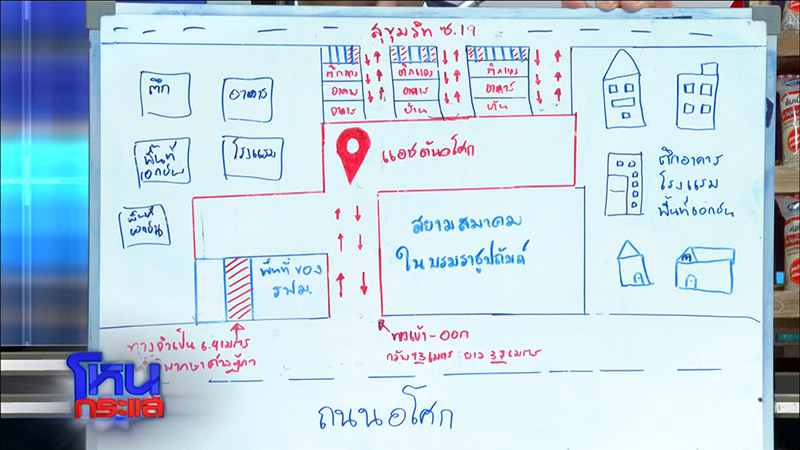 สุขุมวิท ซ.19
ตึกแถว
ตึกแถว
ตึกแถว
อาคาร
อาคาร
อาคาร
อาคาร
บ้าน
บ้าน
ตึก
อาคาร
พื้นที่
เอกชน
โรงแรม
พื้นที่
เอกชน
แอชตันอโศก
ตึกอาคาร
โรงแรม
พื้นที่เอกชน
สยามสมาคม
ในบรมราชูปถัมภ์
พื้นที่ของ
รฟม.
ทางจำเป็น 6.4 เมตร
พิพากษา
ทางเข้า-ออก
กว้าง 13 เมตร ยาว 37 เมตร
ถนนอโศก
โหน
กระแส